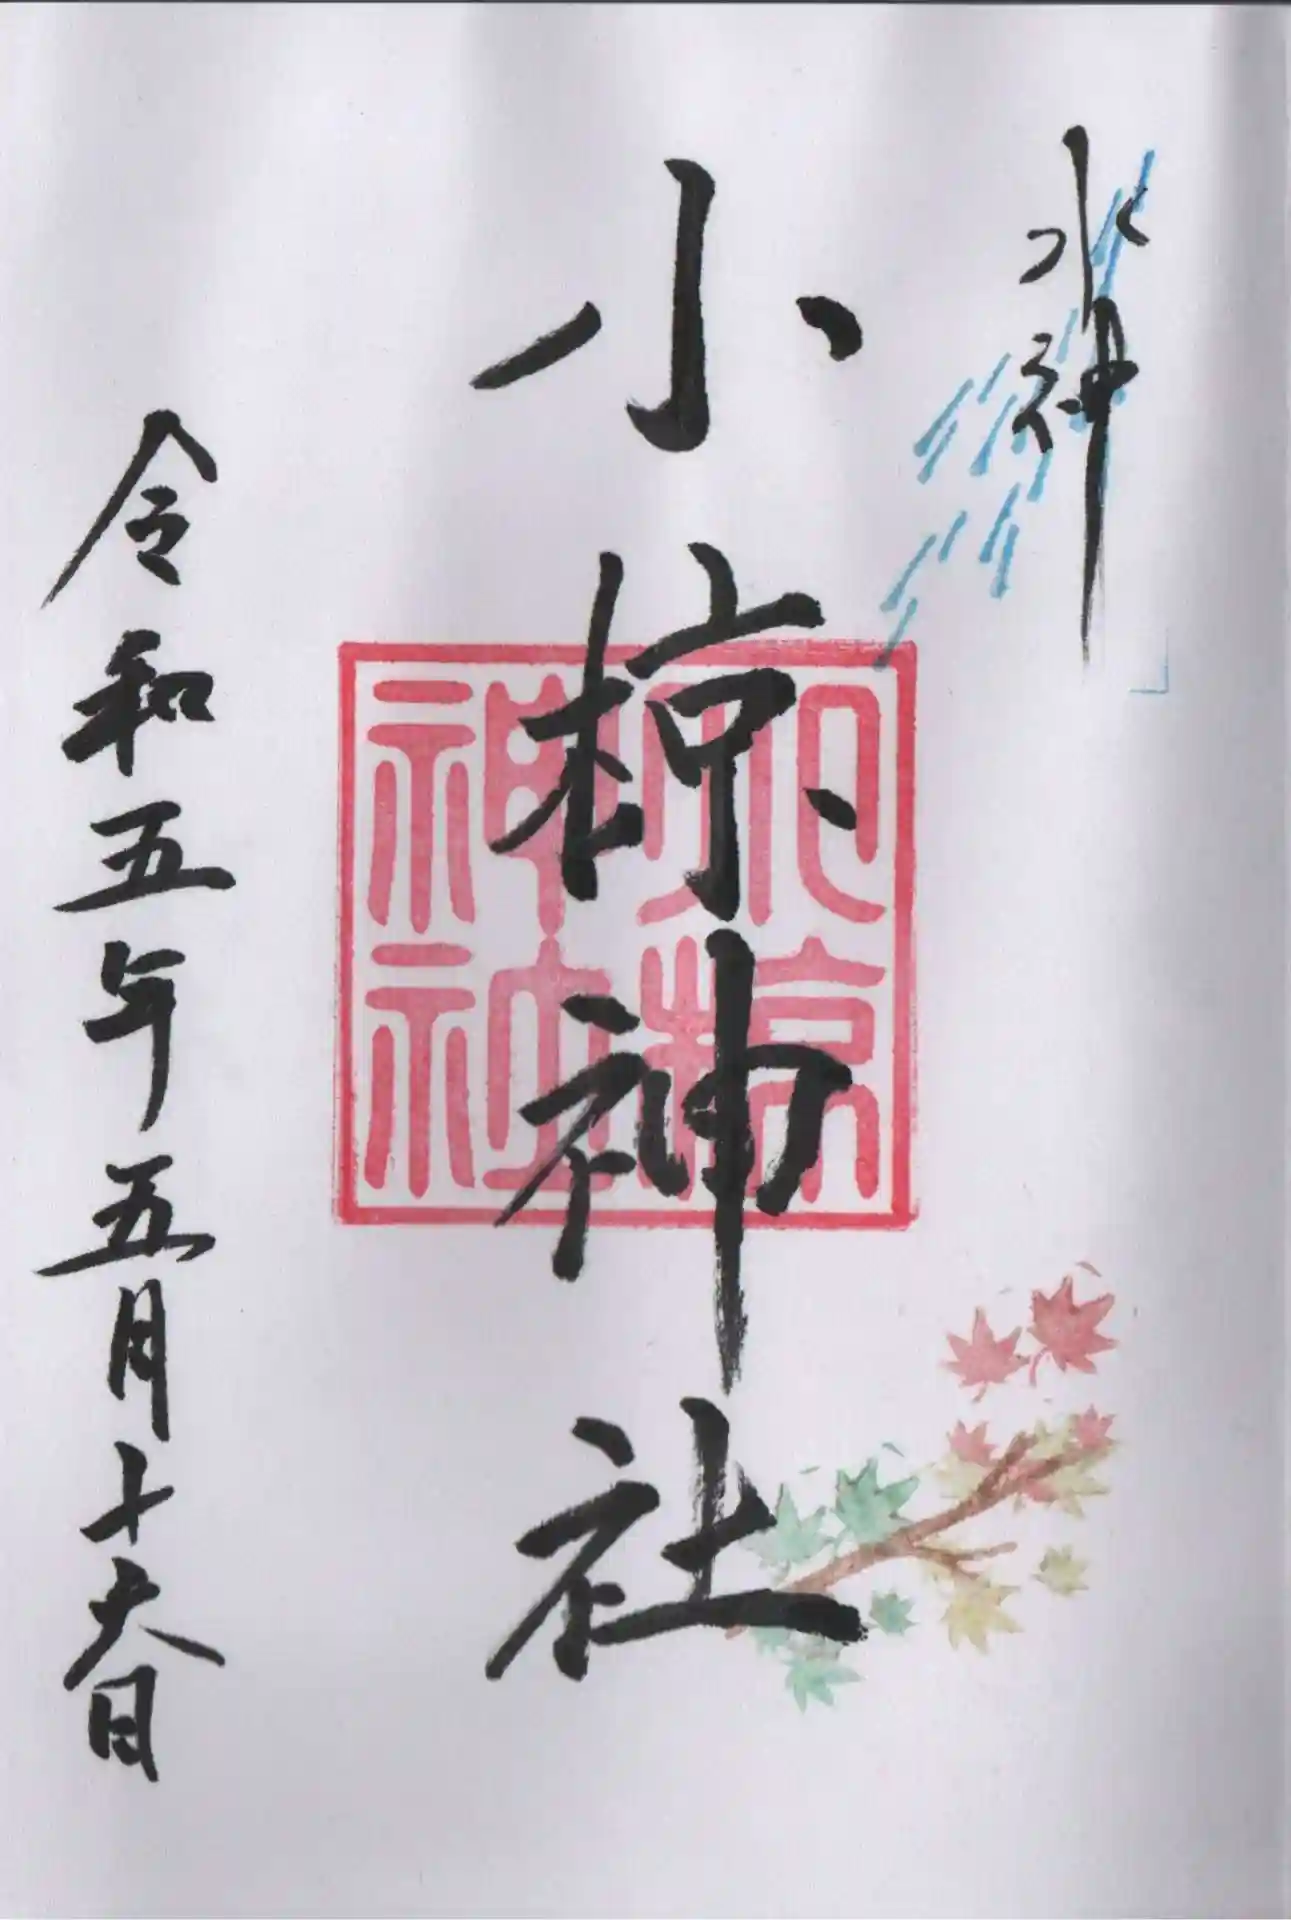 水神
小椋神社
小椋
神社
令和五年五月十六日